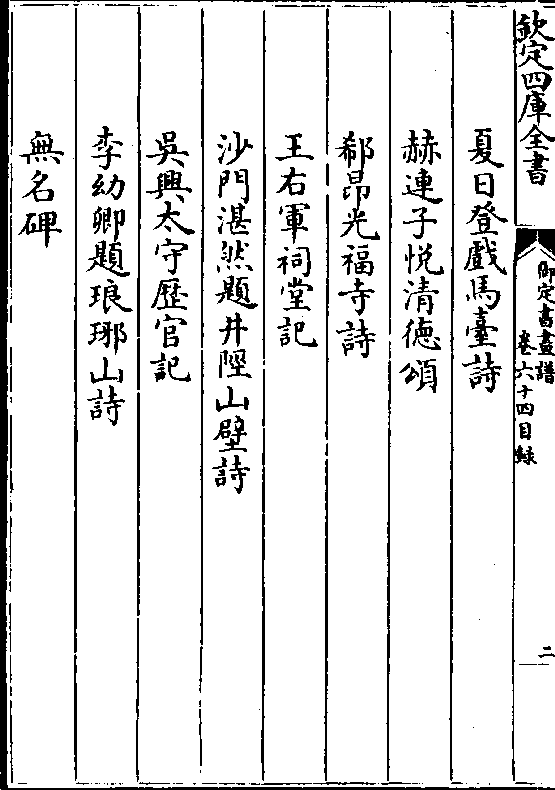 欽定四庫全書
御定書畫譜
卷六十四目録
二
夏日登戲馬臺詩
赫連子悅清德頌
郗昂光福寺詩
王右軍祠堂記
沙門湛然題井陘山壁詩
吳興太守歷官記
李幼卿題琅琊山詩
無名碑